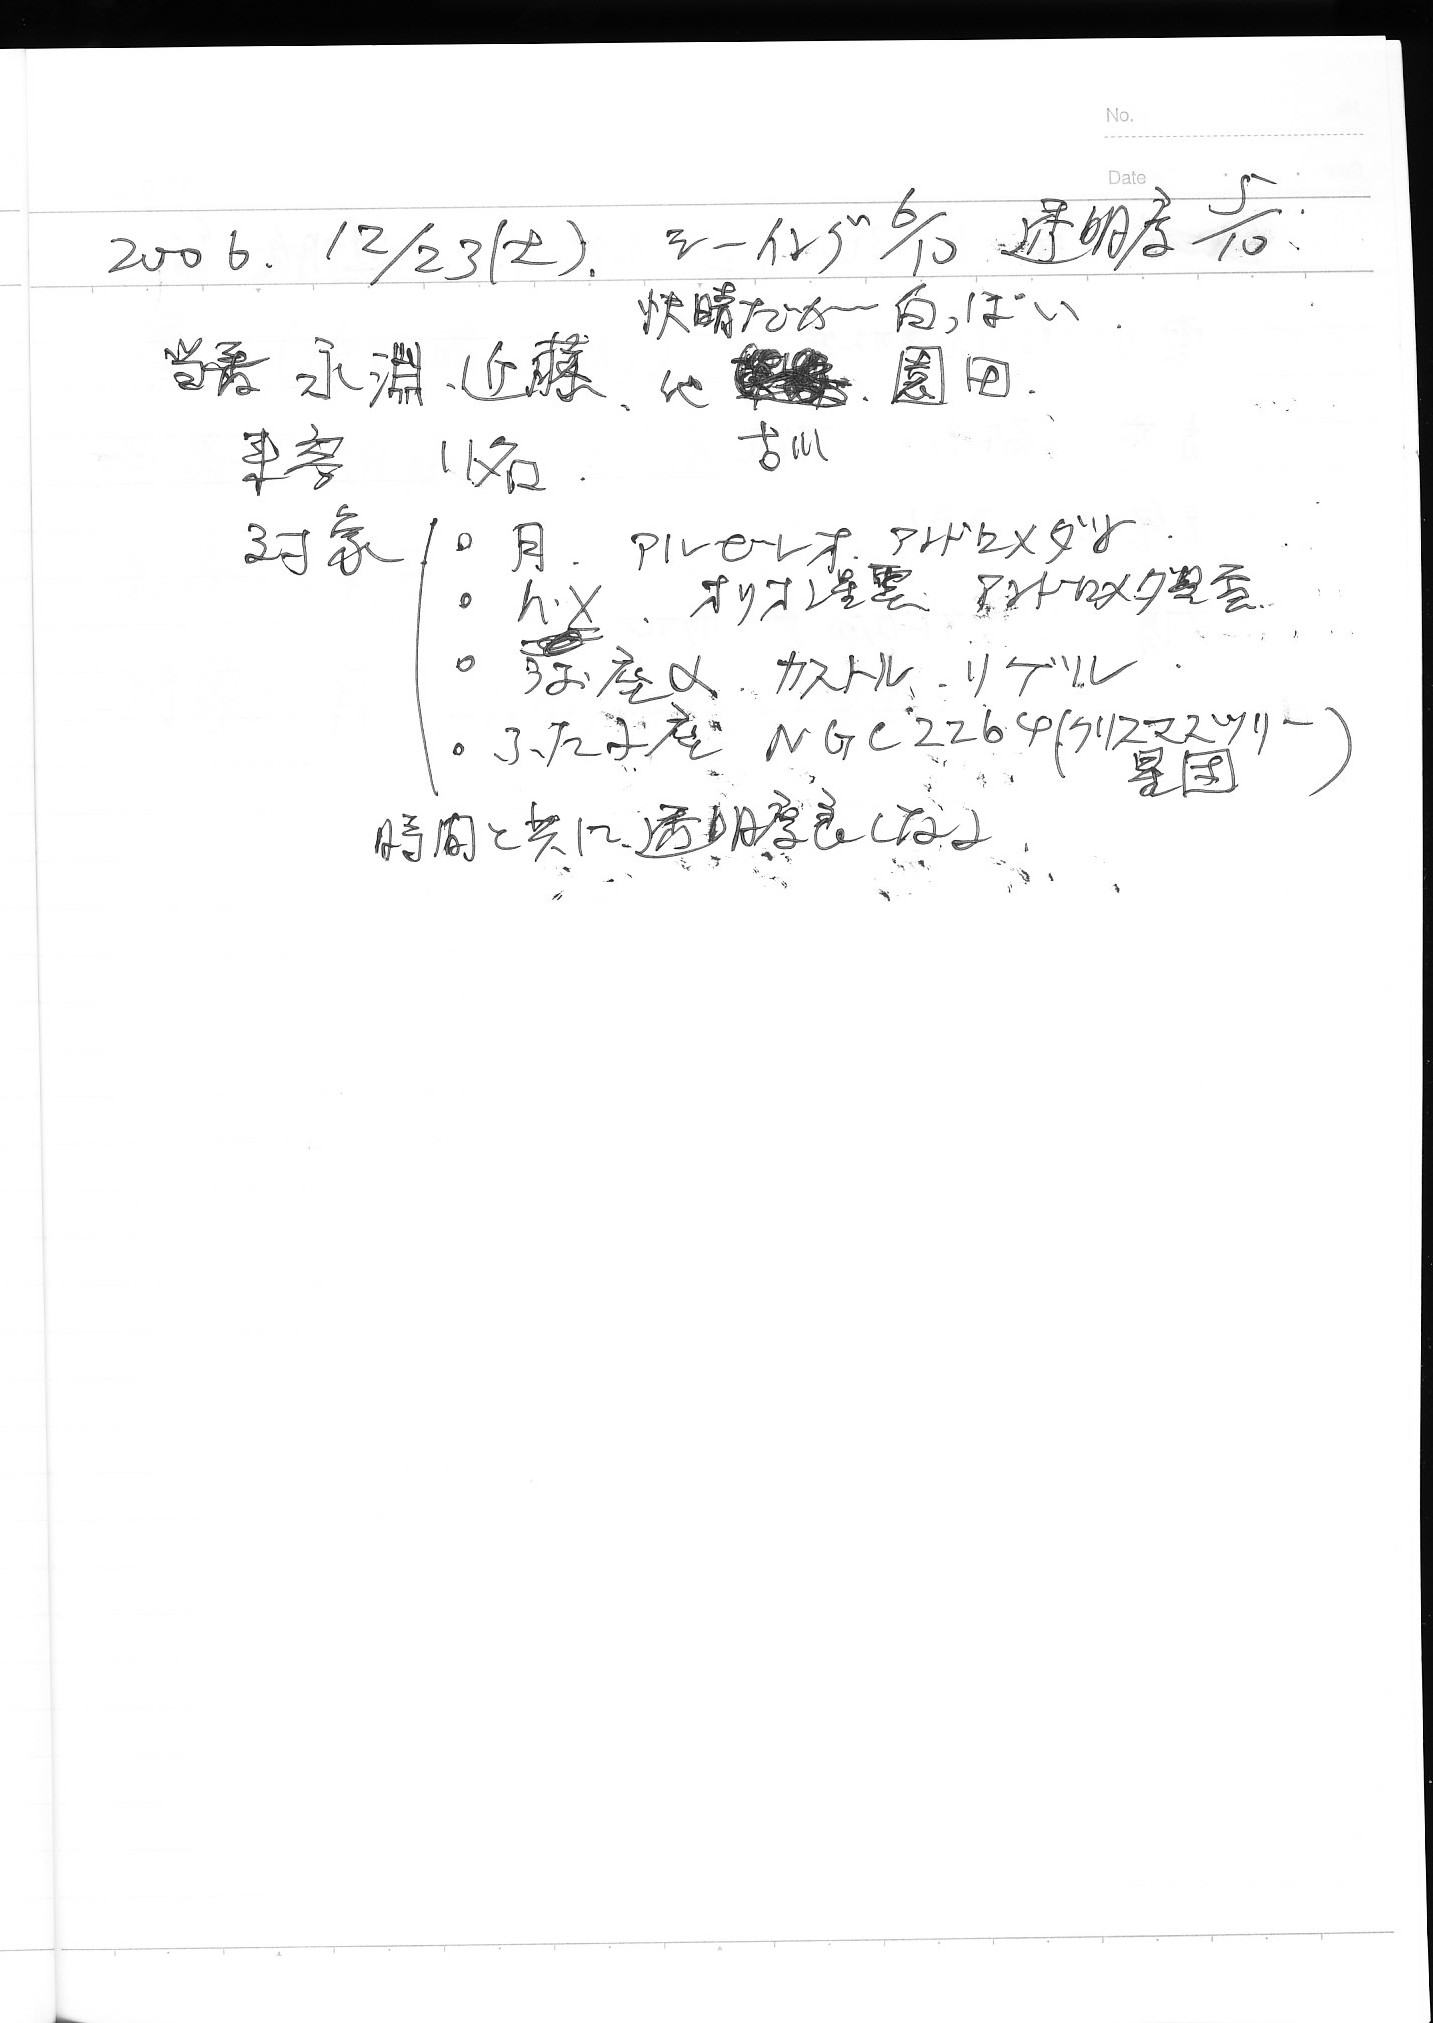 No.
Date
2006. 12/23(土). シーイング 6/10 透明度 5/10
快晴だが 白っぽい.
当番 永淵、近藤、他 園田.
来客 11名. 古川
対象 ・月. アルビレオ. アンドロメダγ.
・h・χ. オリオン星雲 アンドロメダ星雲
・うお座α. カストル. リゲル.
・ふたご座 NGC2264(クリスマスツリー
星団)
時間と共に透明度良くなる.